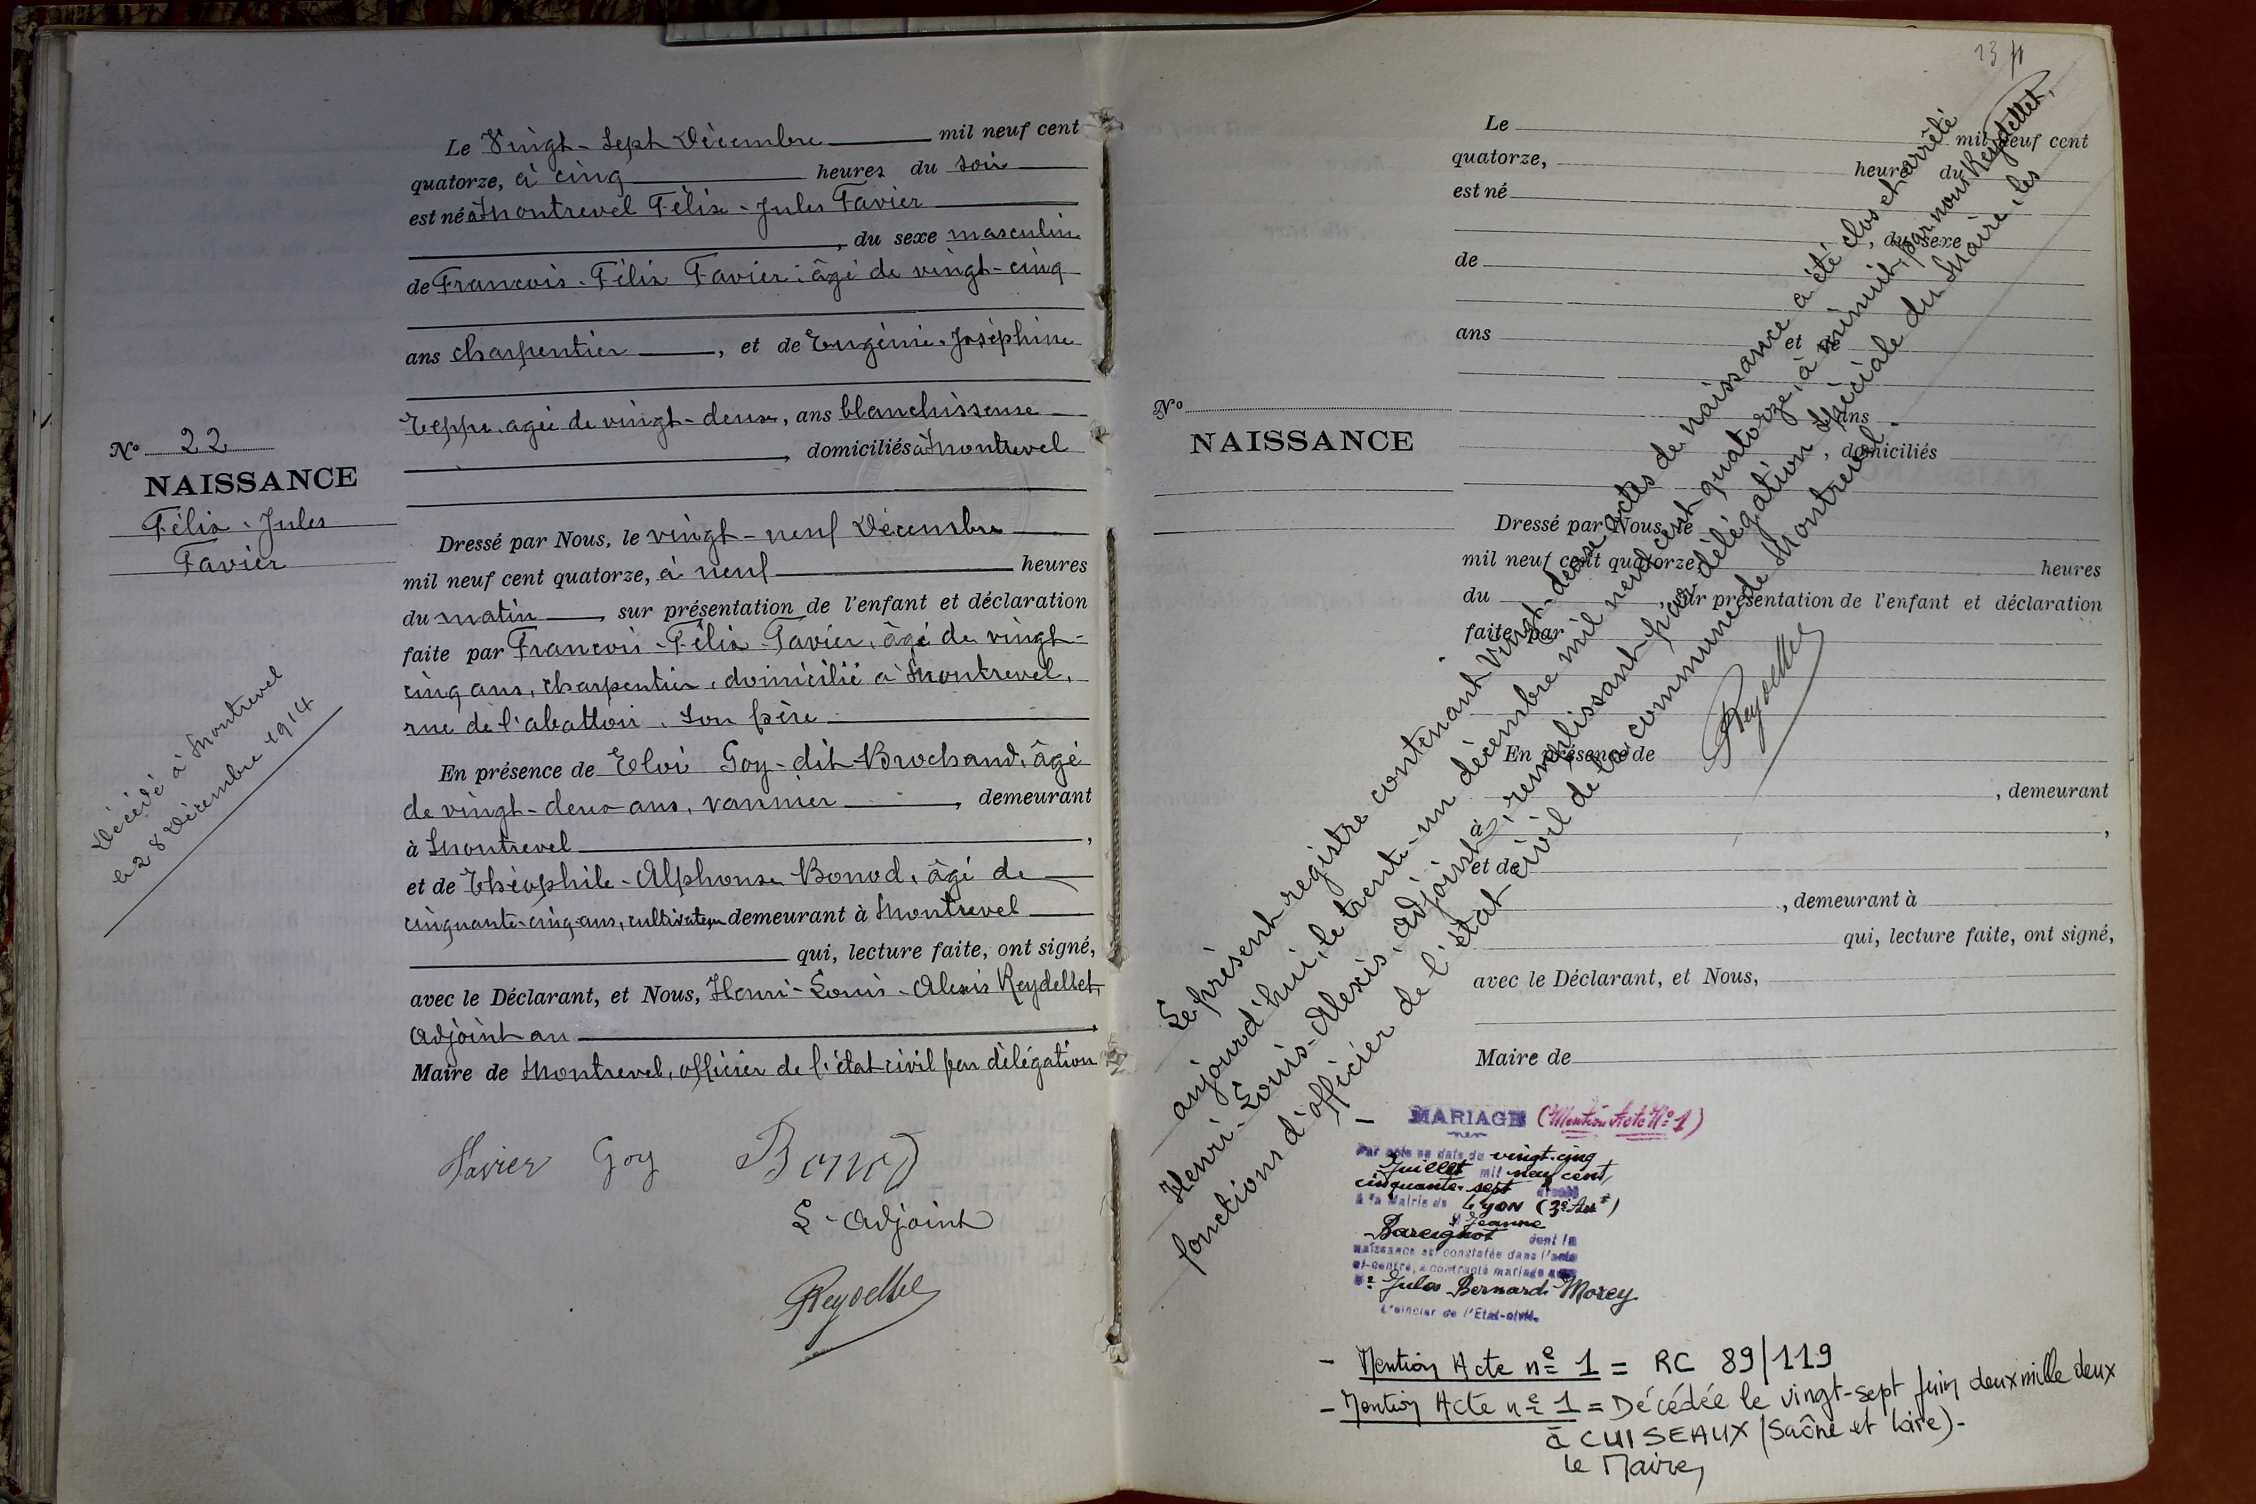 Le Vingt-Sept Décembre mil neuf cent
quatorze, à cinq heures du soir
est né à Montrevel Félix-Jules Favier
, du sexe masculin
de François-Félix Favier, âgé de vingt-cinq
ans charpentier, et de Eugénie-Joséphine
Teppe, agée de vingt-deux, ans blanchisseuse
, domiciliés à Montrevel
No 22
NAISSANCE
Félix-Jules
Favier
Décédé à Montrevel
le 28 Décembre 1914
Dressé par Nous, le vingt-neuf Décembre
mil neuf cent quatorze, à neuf heures
du matin, sur présentation de l'enfant et déclaration
faite par François-Félix Favier, âgé de vingt-
cinq ans, charpentier, domicilié à Montrevel,
rue de l'abattoir, son père
En présence de Eloi Goy-dit-Brochand, âgé
de vingt-deux ans, vannier, demeurant
à Montrevel,
et de Théophile-Alphonse Bonod, âgé de
cinquante-cinq-ans, cultivateur demeurant à Montrevel
qui, lecture faite, ont signé,
avec le Déclarant, et Nous, Henri-Louis-Alexis Reydellet,
Adjoint au
Maire de Montrevel, officier de l'état civil par délégation
Favier Goy Bonod
L'Adjoint
Reydellet
Le mil neuf cent
quatorze, heures du
est né
, du sexe
de
ans et de
No
ans
NAISSANCE
, domiciliés
Dressé par Nous, le
mil neuf cent quatorze, heures
du , sur présentation de l'enfant et déclaration
faite par
En présence de
, demeurant
à ,
et de
, demeurant à
qui, lecture faite, ont signé,
avec le Déclarant, et Nous,
Maire de
Le présent registre contenant Vingt-deux actes de naissance a été clos et arrêté
aujourd'hui, le trente-un décembre mil neuf cent quatorze, à minuit, par nous Reydellet,
Henri-Louis-Alexis, adjoint, remplissant par délégation spéciale du Maire, les
fonctions d'officier de l'état civil de la commune de Montrevel.
Reydellet
MARIAGE (Mention Acte No 1)
Par acte en date du vingt-cinq
Juillet mil neuf cent
cinquante-sept
à la Mairie de Lyon (3e Art)
Jeanne
Bareignot dont la
naissance est constatée dans l'acte
ci-contre, a contracté mariage avec
Mr Jules Bernard Morey
L'officier de l'Etat-civil.
- Mention Acte no 1 = RC 89/119
- Mention Acte no 1 = Décédée le vingt-sept juin deux mille deux
à CUISEAUX (Saône et Loire)-
le Maire,